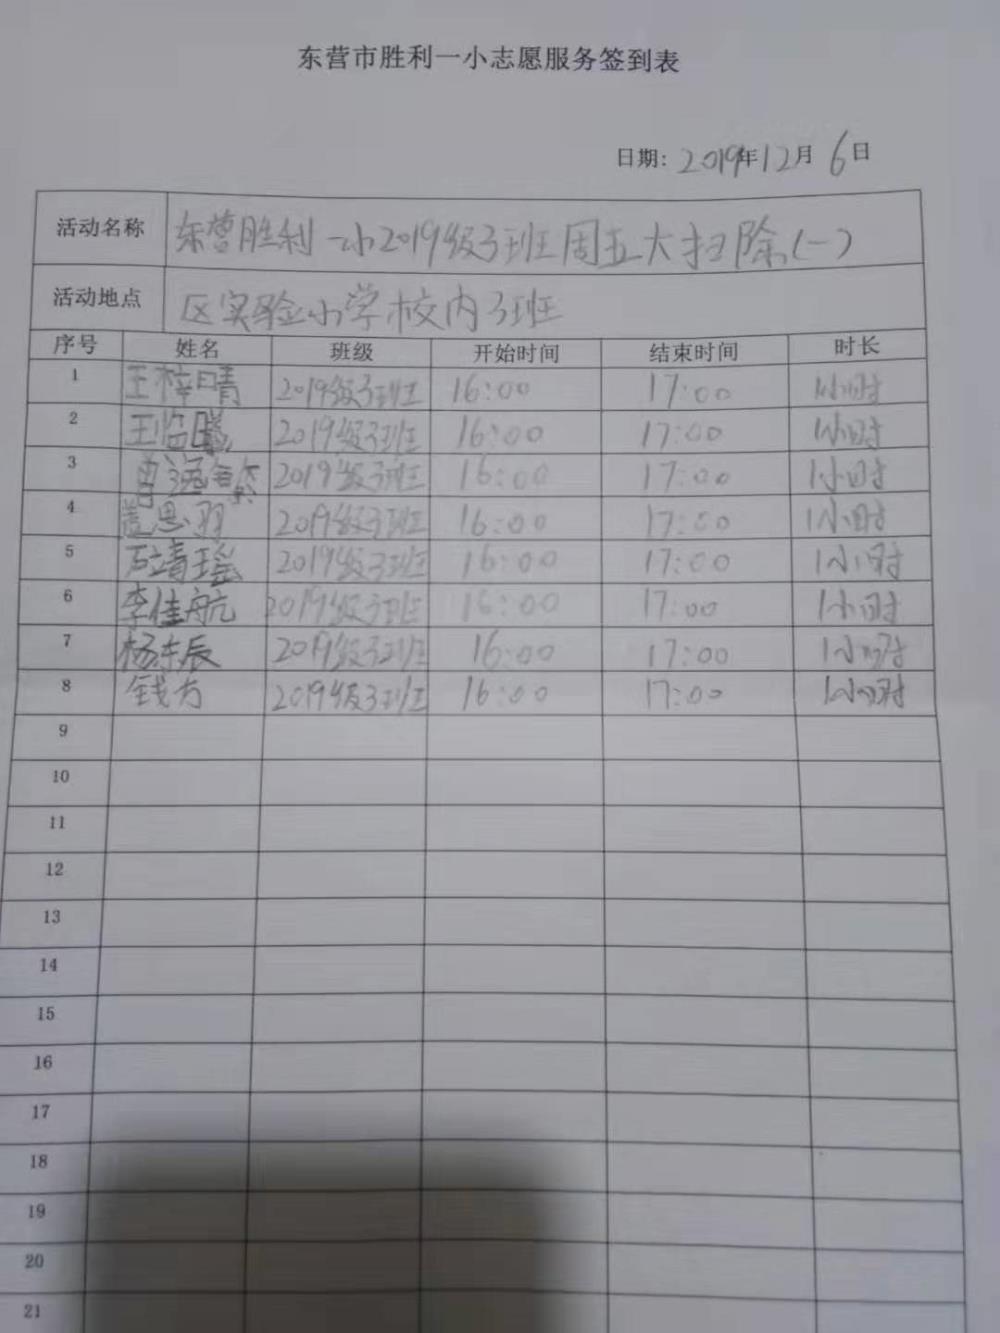 东营市胜利一小志愿服务签到表
日期: 2019年12月6日
活动名称 东营胜利一小2019级3班周五大扫除(一)
活动地点 区实验小学校内3班
序号 姓名 班级 开始时间 结束时间 时长
1 王梓晴 2019级3班 16:00 17:00 1小时
2 王临 2019级3班 16:00 17:00 1小时
3 曾逸 2019级3班 16:00 17:00 1小时
4 思羽 2019级3班 16:00 17:00 1小时
5 石靖瑶 2019级3班 16:00 17:00 1小时
6 李佳航 2019级3班 16:00 17:00 1小时
7 杨东辰 2019级3班 16:00 17:00 1小时
8 钱方 2019级3班 16:00 17:00 1小时
9
10
11
12
13
14
15
16
17
18
19
20
21